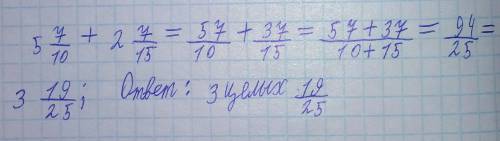 5 7/10 + 2 7/15 = 57/10 + 37/15 = 57+37/10+15 = 94/25 =
3 19/25; Ответ: 3 целых 19/25